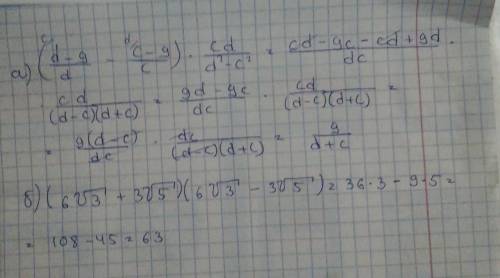 а) (d-g/d - c-g/c) · cd/d²-c² = cd-gc-cd+gd/dc ·
cd/(d-c)(d+c) = gd-gc/dc · cd/(d-c)(d+c) =
= g(d-c)/dc · dc/(d-c)(d+c) = g/d+c
б) (6√3 + 3√5)(6√3 - 3√5) = 36·3 - 9·5 =
= 108 - 45 = 63